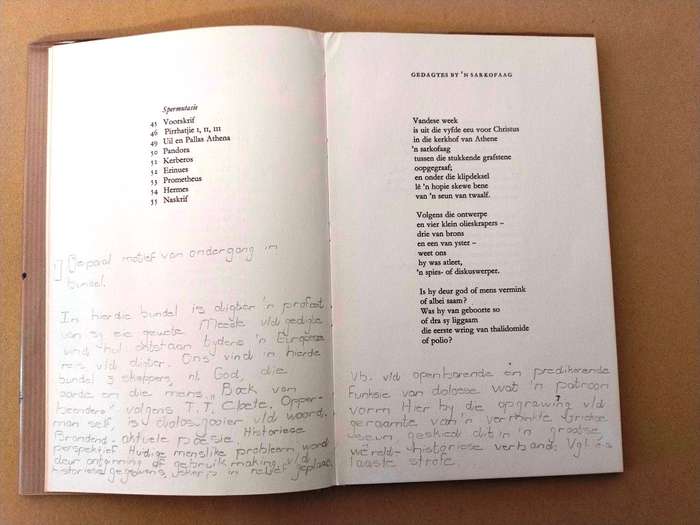 Spermutasie
45 Voorskrif
46 Pirrhatjie I, II, III
49 Uil en Pallas Athena
50 Pandora
51 Kerberos
52 Erinues
53 Prometheus
54 Hermes
55 Naskrif
1) Bepaal motief van ondergang in
bundel.
In hierdie bundel is digter 'n profeet
van sy eie gewete. Meeste v/d gedigte
vind hul ontstaan tydens 'n Europese
reis v/d digter. Ons vind in hierdie
bundel 3 skeppers, nl. God, die
aarde en die mens. "Boek van
beendere" volgens T.T. Cloete. Opper-
man self is dolosgooier v/d woord.
Brandend aktuele poësie. Historiese
perspektief. Huidige menslike probleem word
deur ontginning of gebruikmaking v/d
historiese gegewens, skerp in reliëf geplaas.
GEDAGTES BY 'N SARKOFAAG
Vandese week
is uit die vyfde eeu voor Christus
in die kerkhof van Athene
'n sarkofaag
tussen die stukkende grafstene
oopgegraaf;
en onder die klipdeksel
lê 'n hopie skewe bene
van 'n seun van twaalf.
Volgens die ontwerpe
en vier klein olieskrapers –
drie van brons
en een van yster –
weet ons
hy was atleet,
'n spies- of diskuswerper.
Is hy deur god of mens vermink
of albei saam?
Was hy van geboorte so
of dra sy liggaam
die eerste wring van thalidomide
of polio?
Vb. v/d openbarende en predikende
Funksie van dolosse wat 'n patroon
vorm. Hier by die opgrawing v/d
geraamte van 'n verminkte Griekse
seun geskied dit in 'n grootse
wêreld-historiese verband; Vgl. ook
laaste strofe.